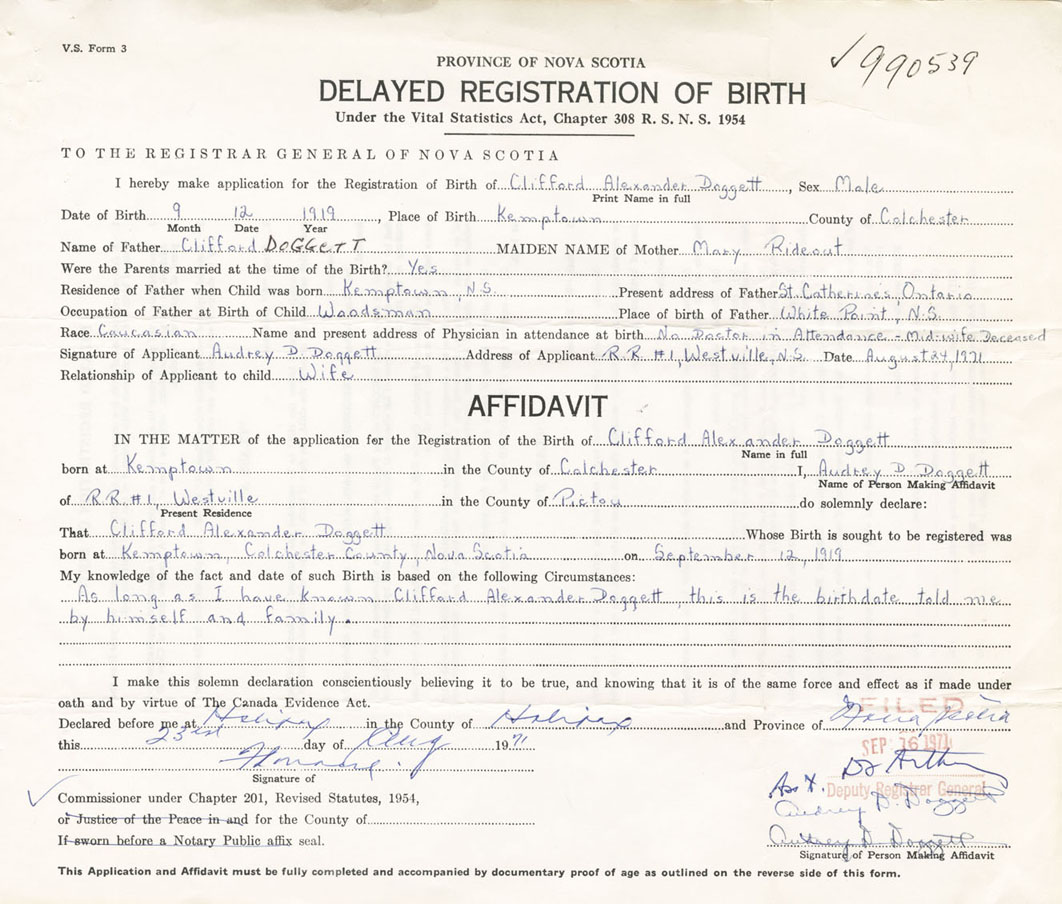 V.S. Form 3
PROVINCE OF NOVA SCOTIA
✓990539
DELAYED REGISTRATION OF BIRTH
Under the Vital Statistics Act, Chapter 308 R. S. N. S. 1954
TO THE REGISTRAR GENERAL OF NOVA SCOTIA
I hereby make application for the Registration of Birth of Clifford Alexander Doggett, Sex Male
Print Name in full
Date of Birth 9 12 1919, Place of Birth Kemptown County of Colchester
Month Date Year
Name of Father Clifford DOGGETT MAIDEN NAME of Mother Mary Rideout
Were the Parents married at the time of the Birth? Yes
Residence of Father when Child was born Kemptown, N.S. Present address of Father St. Catherines, Ontario
Occupation of Father at Birth of Child Woodsman Place of birth of Father White Point, N.S.
Race Caucasian Name and present address of Physician in attendance at birth No Doctor in Attendance - Midwife Deceased
Signature of Applicant Audrey D. Doggett Address of Applicant R.R. #1, Westville, N.S. Date August 24, 1971
Relationship of Applicant to child Wife
AFFIDAVIT
IN THE MATTER of the application for the Registration of the Birth of Clifford Alexander Doggett
Name in full
born at Kemptown in the County of Colchester I, Audrey D. Doggett
Name of Person Making Affidavit
of R.R. #1, Westville in the County of Pictou do solemnly declare:
Present Residence
That Clifford Alexander Doggett Whose Birth is sought to be registered was
born at Kemptown, Colchester County, Nova Scotia on September 12, 1919
My knowledge of the fact and date of such Birth is based on the following Circumstances:
As long as I have known Clifford Alexander Doggett, this is the birthdate told me
by himself and family.
I make this solemn declaration conscientiously believing it to be true, and knowing that it is of the same force and effect as if made under
oath and by virtue of The Canada Evidence Act.
FILED
Declared before me at Halifax in the County of Halifax and Province of Nova Scotia
this day of Aug 1971
SEP 16 1971
Signature of
Asst. Deputy Registrar General
Commissioner under Chapter 201, Revised Statutes, 1954,
Audrey D. Doggett
or Justice of the Peace in and for the County of
If sworn before a Notary Public affix seal.
Audrey D. Doggett
Signature of Person Making Affidavit
This Application and Affidavit must be fully completed and accompanied by documentary proof of age as outlined on the reverse side of this form.